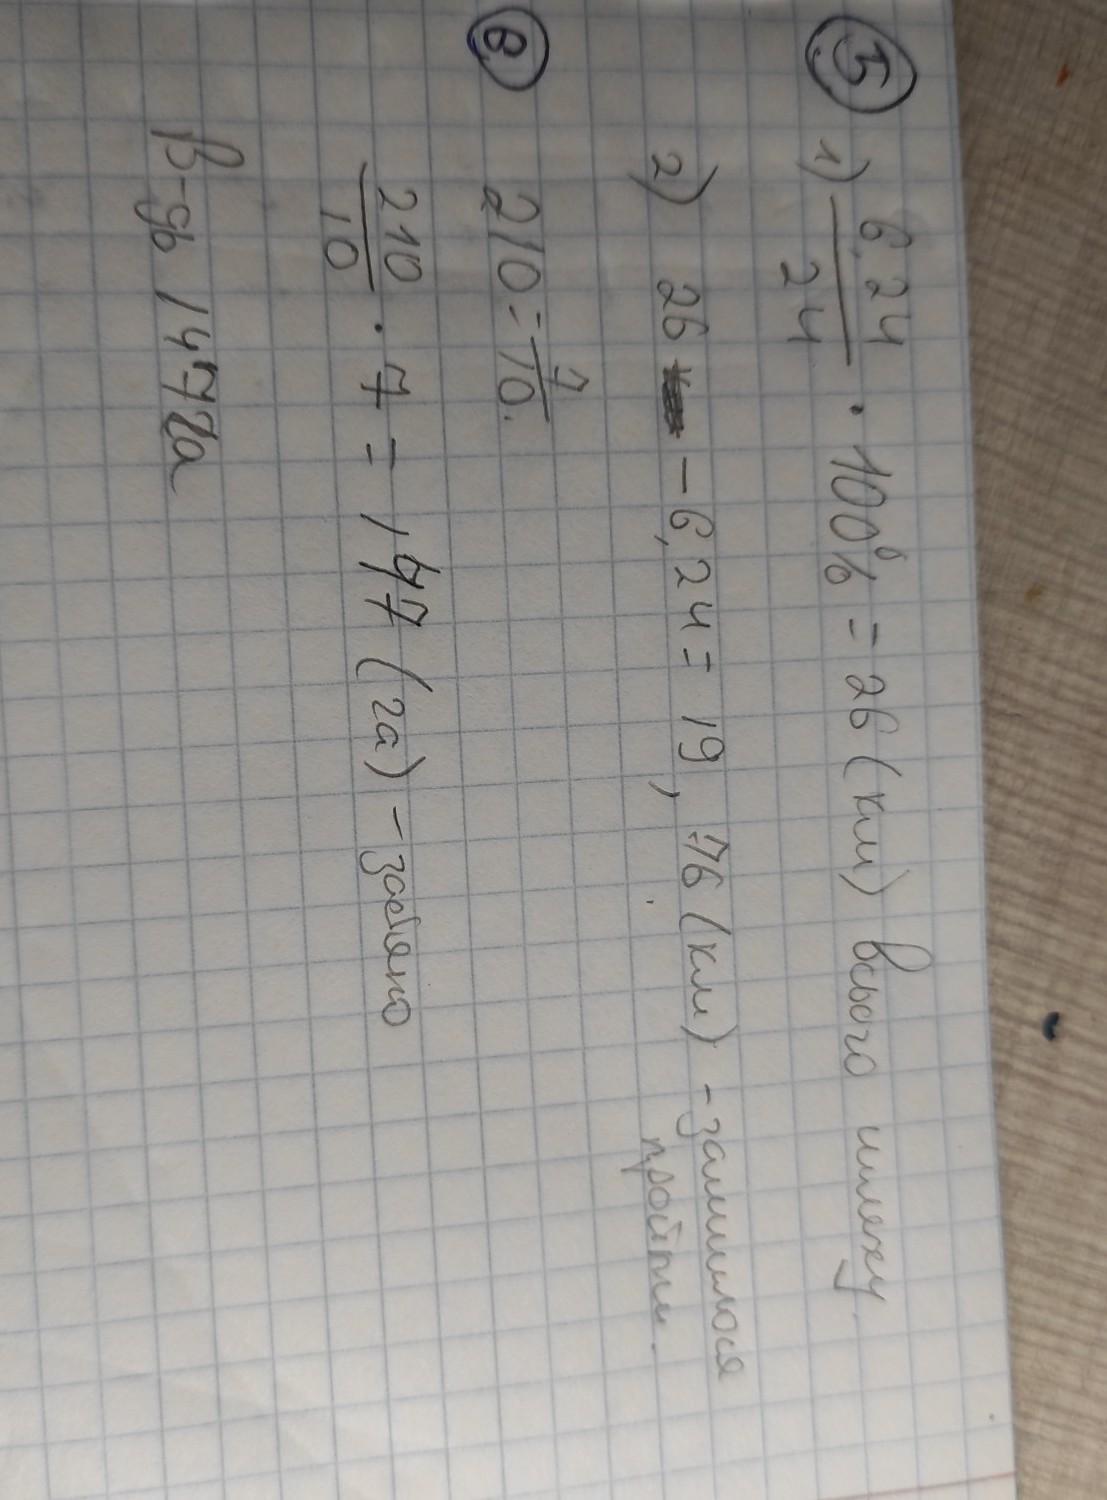 5 1) 6,24/24 · 100% = 26 (км) всього шляху.
2) 26 - 6,24 = 19,76 (км) - залишилося
пройти.
в 210 = 7/10.
210/10 · 7 = 147 (га) - засіяно
В-дь 147 га